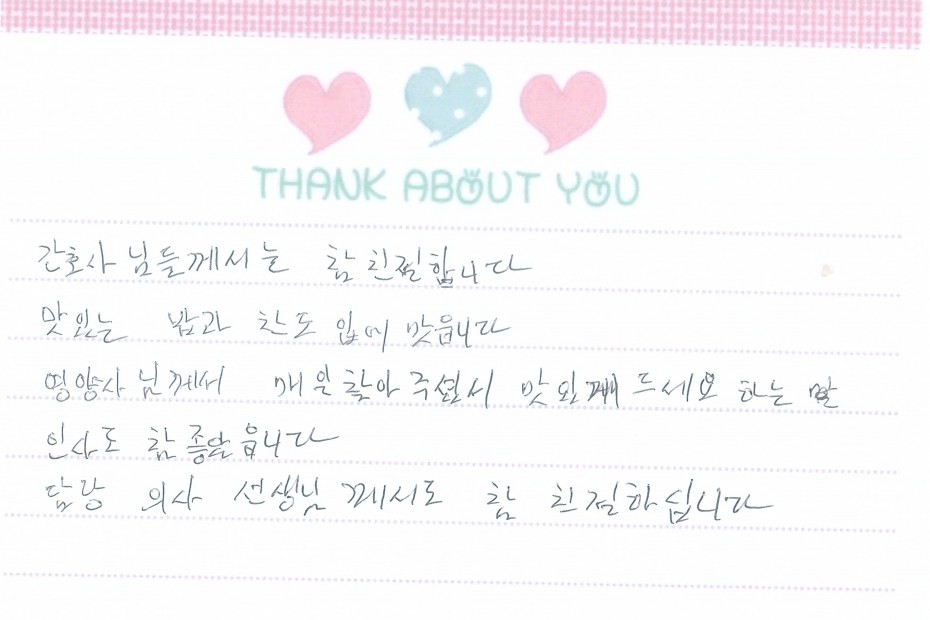 THANK ABOUT YOU
간호사 님들께서는 참 친절합니다
맛있는 밥과 찬도 입에 맛읍니다
영양사 님께서 매일 찾아 주셔서 맛있게 드세요 하는 말
인사도 참 좋았읍니다
담당 의사 선생님 께서도 참 친절하십니다